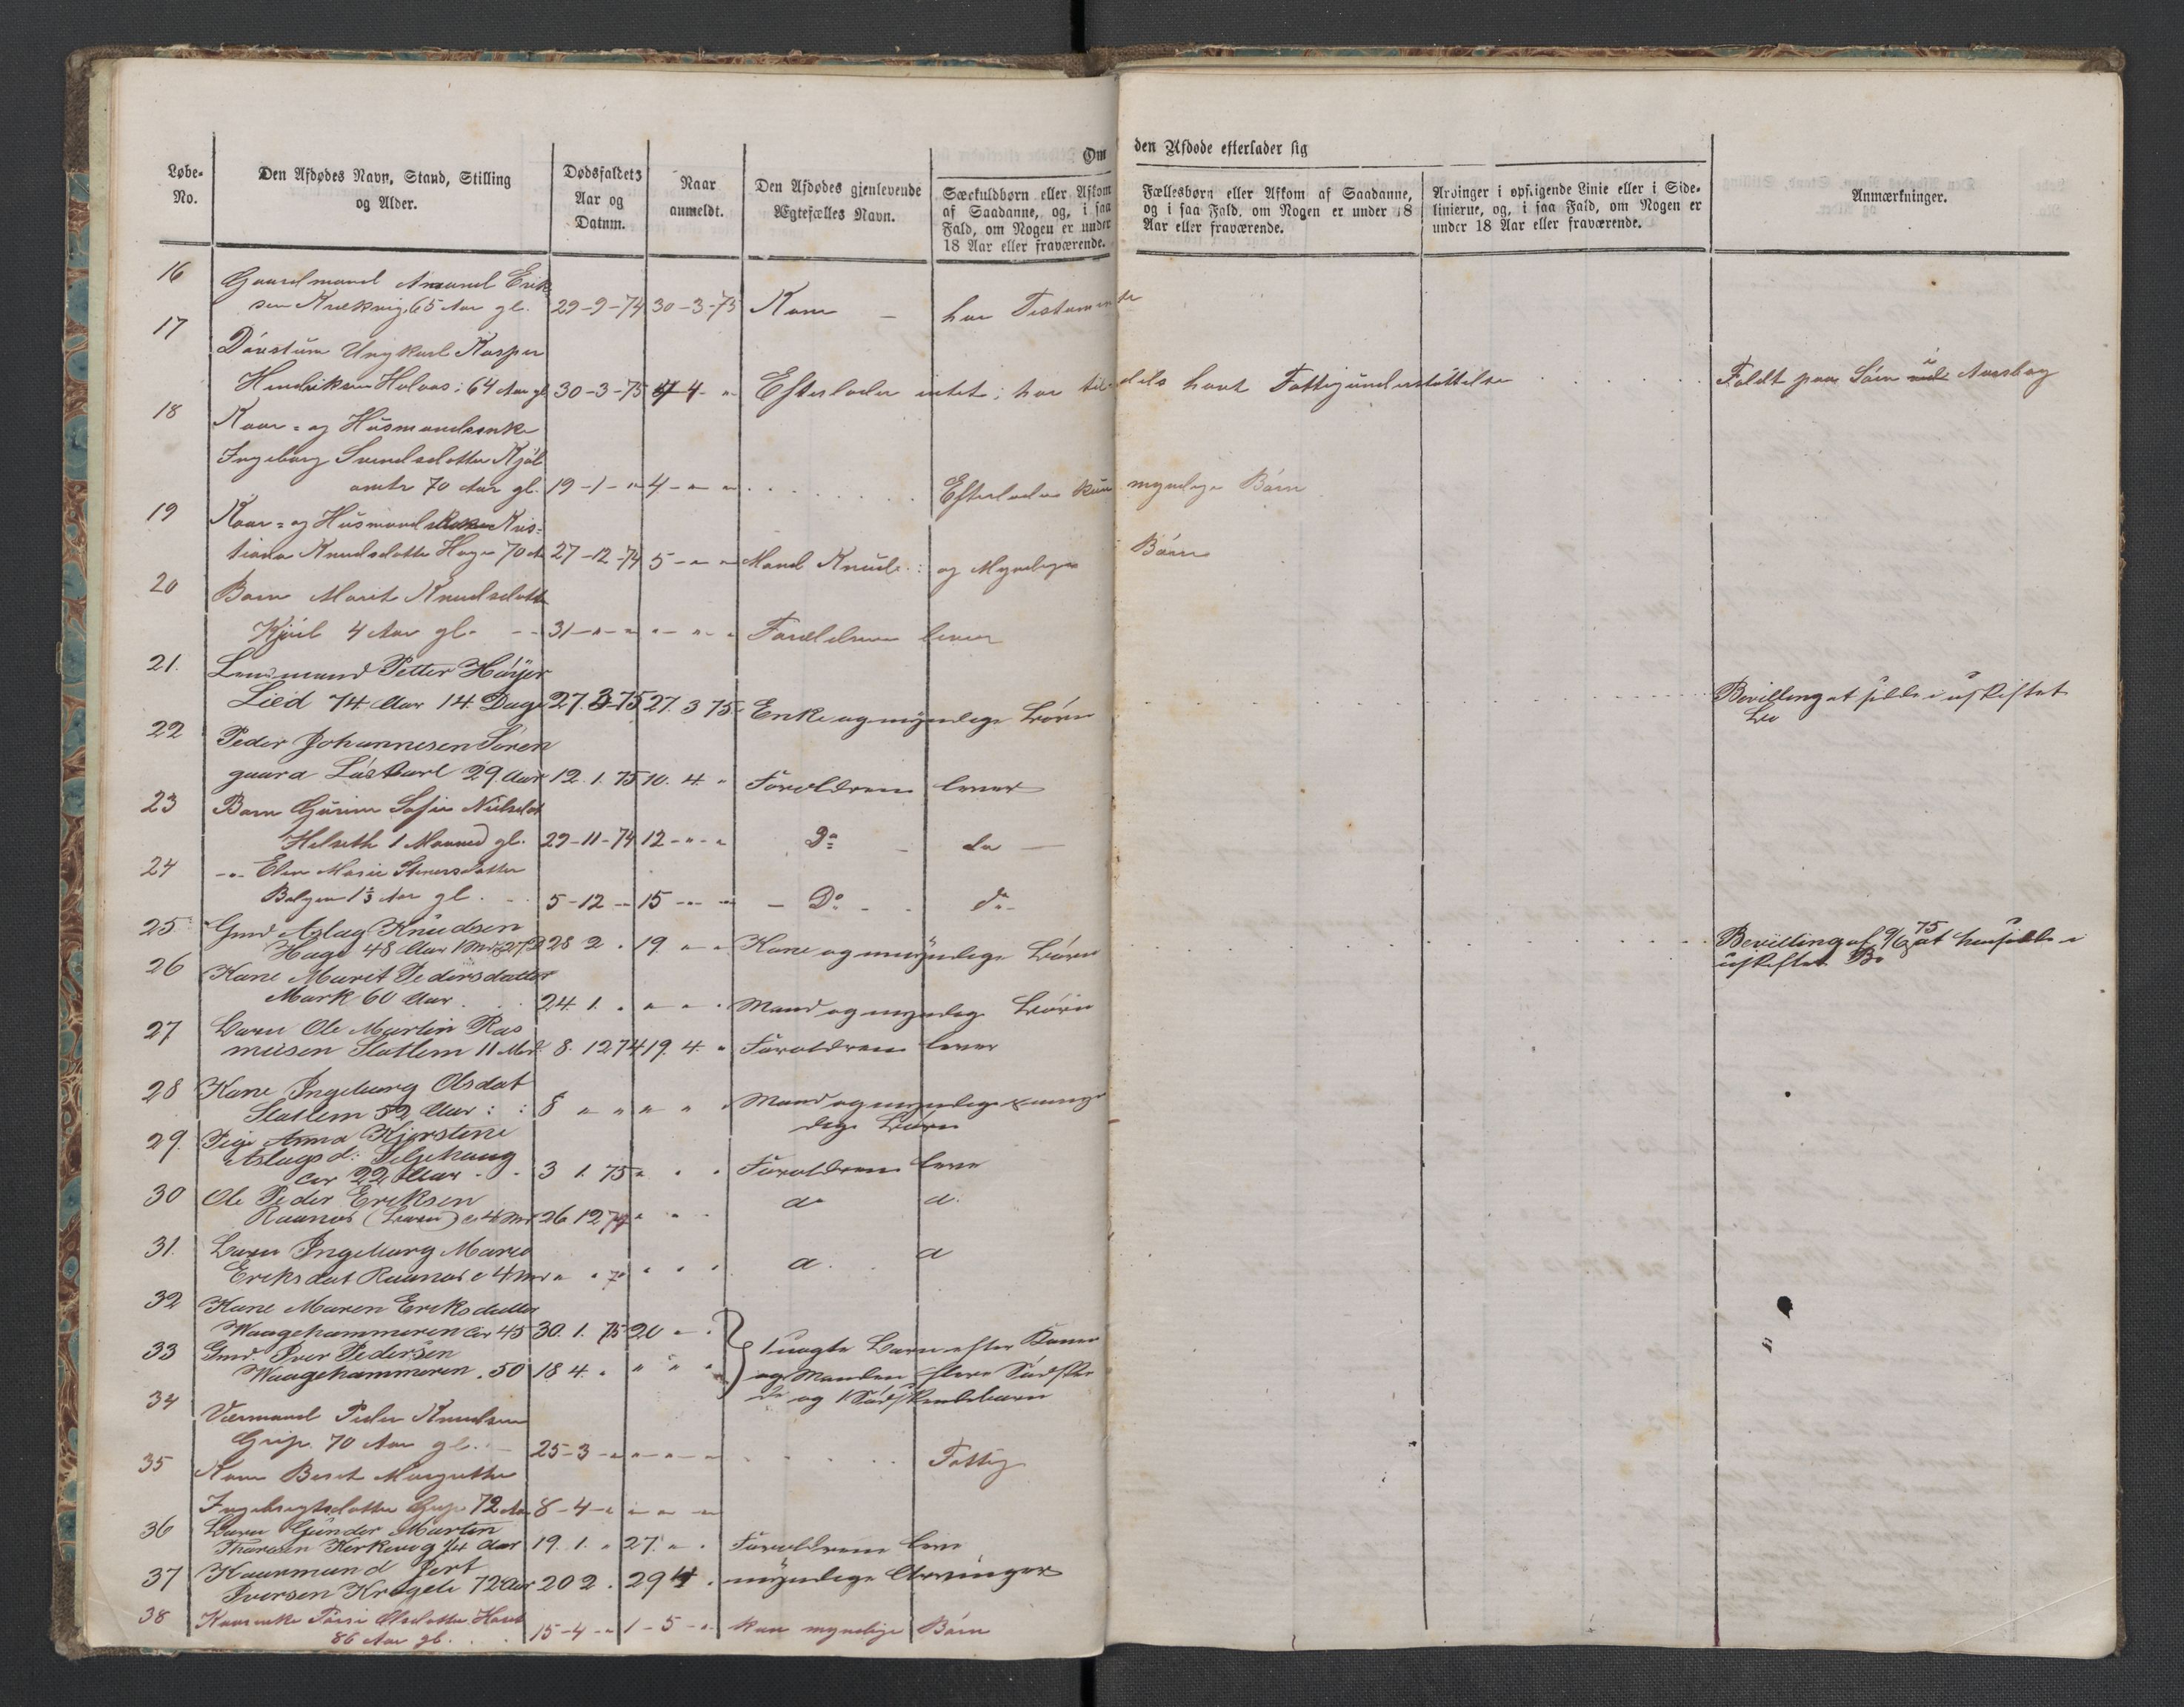 Løbe-
No.
Den Afdødes Navn, Stand, Stilling
og Alder.
Dødsfaldets
Aar og
Datum.
Naar
anmeldt.
Den Afdødes gjenlevende
Ægtefælles Navn.
Om
Særkuldbørn eller Afkom
af Saadanne, og, i saa
Fald, om Nogen er under
18 Aar eller fraværende.
den Afdøde efterlader sig
Fællesbørn eller Afkom af Saadanne,
og i saa Fald, om Nogen er under 18
Aar eller fraværende.
Arvinger i opstigende Linie eller i Side-
linierne, og, i saa Fald, om Nogen er
under 18 Aar eller fraværende.
Anmærkninger.
16 Gaardmand Amund Erik
sen 65 Aar gl. 29-9-74 30-3-75 Kone – har Testamente
17 Ungkarl Kasper
Hendriksen Holvas: 64 Aar gl 30-3-75 4 - " Efterlader intet; har tildels havt Fattigunderstøttelse Faldt paa Søen Aarsbog
18 Kaar- og Husmandsenke
Ingeborg Svendsdatter Kjøl
70 Aar gl. 19-1-" 4-"-" Efterlader kun myndige Børn
19 Kaar- og Husmands Kris-
tiana Knudsdatter Hage 70 A 27-12-74 5-"-" Mand Knud : og Myndige Børn
20 Barn Marit Knudsdatt
Kjöl 4 Aar gl. -- 31-"-" "-"-" Forældrene lever
21. Lensmand Petter Höyer
Lied 74 Aar 14 Dage 27.3-75 27.3 75 Enke og myndige Børn Bevilling at sidde i uskiftet
Bo
22 Peder Johannesen Sören
gaard Löskarl 29 Aar 12.1.75 10.4." Foreldrene lever
23 Barn Gurine Sofie Nielsdt
Helseth 1 Maaned gl. 29-11-74 12-"-" Do – do –
24 -"- Elen Marie Steversdatter
Bolgen 1 2/3 Aar gl. 5-12-- 15 -- -- – Do - do-
25 Gmd Aslag Knudsen
Hage 48 Aar 1 Md 27 D 28 2. 19 " " Kone og myndige Børn Bevilling af 9/6 75 at hensidde i
uskiftet Bo
26 Kone Marit Pedersdatter
Mark 60 Aar 24.1. " " " Mand og myndige Børn
27 Barn Ole Martin Ras
musen Slatlem 11 Md. 8.12 74 19.4. " Foreldrene lever
28 Kone Ingeborg Olsdat
Slatlem 52 Aar : : 8 " " " " Mand og myndige
dige Børn
29. Pige Anna Kjerstine
Aslagsd:
cir 22 Aar 3 1.75 " " " Foreldrene leve
30 Ole Peder Eriksen
Raanas (Barn) c 4 Md 26 12 74 " " d d.
31. Barn Ingeborg Maria
Eriksdat Raanas c 4 Md " " 74 " " " d. d
32 Kone Maren Eriksdatter
Waagehammeren cir 45 30.1.75 20 " . 1 uægte Barn efter Konen
33 Gmd. Iver Pedersen
Waagehammeren. 50 18 4. " " " og Manden flere Södsken
de og 1 Södskendebarn
34 Peder Knudsen
Grip. 70 Aar gl. – 25-3-" "-"-" Fattig
35 Kone Berit Margrethe
Ingebrigtsdatter Grip 72 Aar 8-4-" "-"-"
36 Barn Gunder Martin
Thoresen Kirkevog 1/4 Aar 19.1. " 27. " . Foreldrene leve
37 Kaarmand Gert
Iversen 72 Aar 20 2. 29 4. myndige Arvinger
38 Kaarenke Olsdatter
86 Aar gl. 15-4-" 1-5-" kun myndige Börn